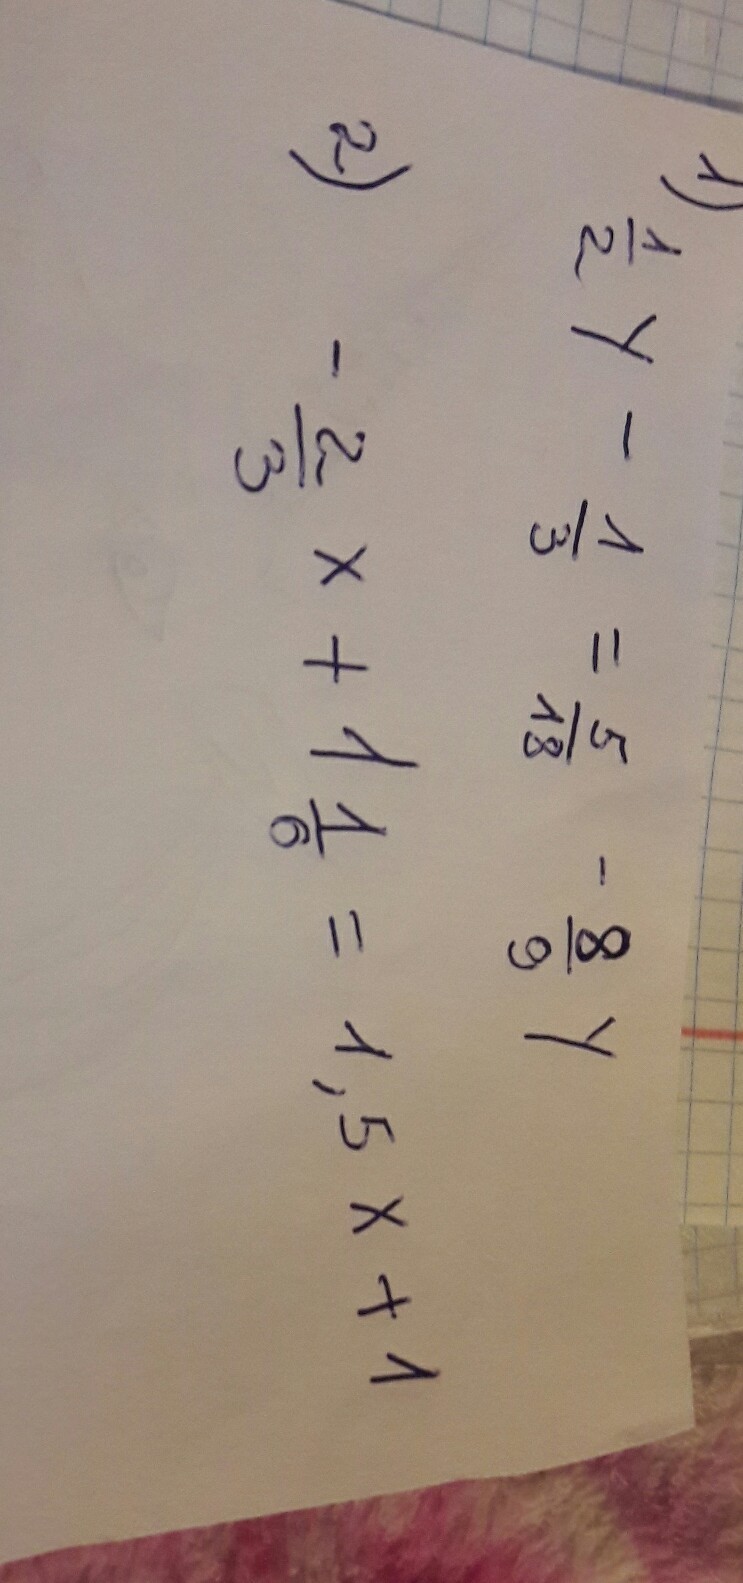 1)
1/2 y - 1/3 = 5/18 - 8/9 y
2) - 2/3 x + 1 1/6 = 1,5 x + 1